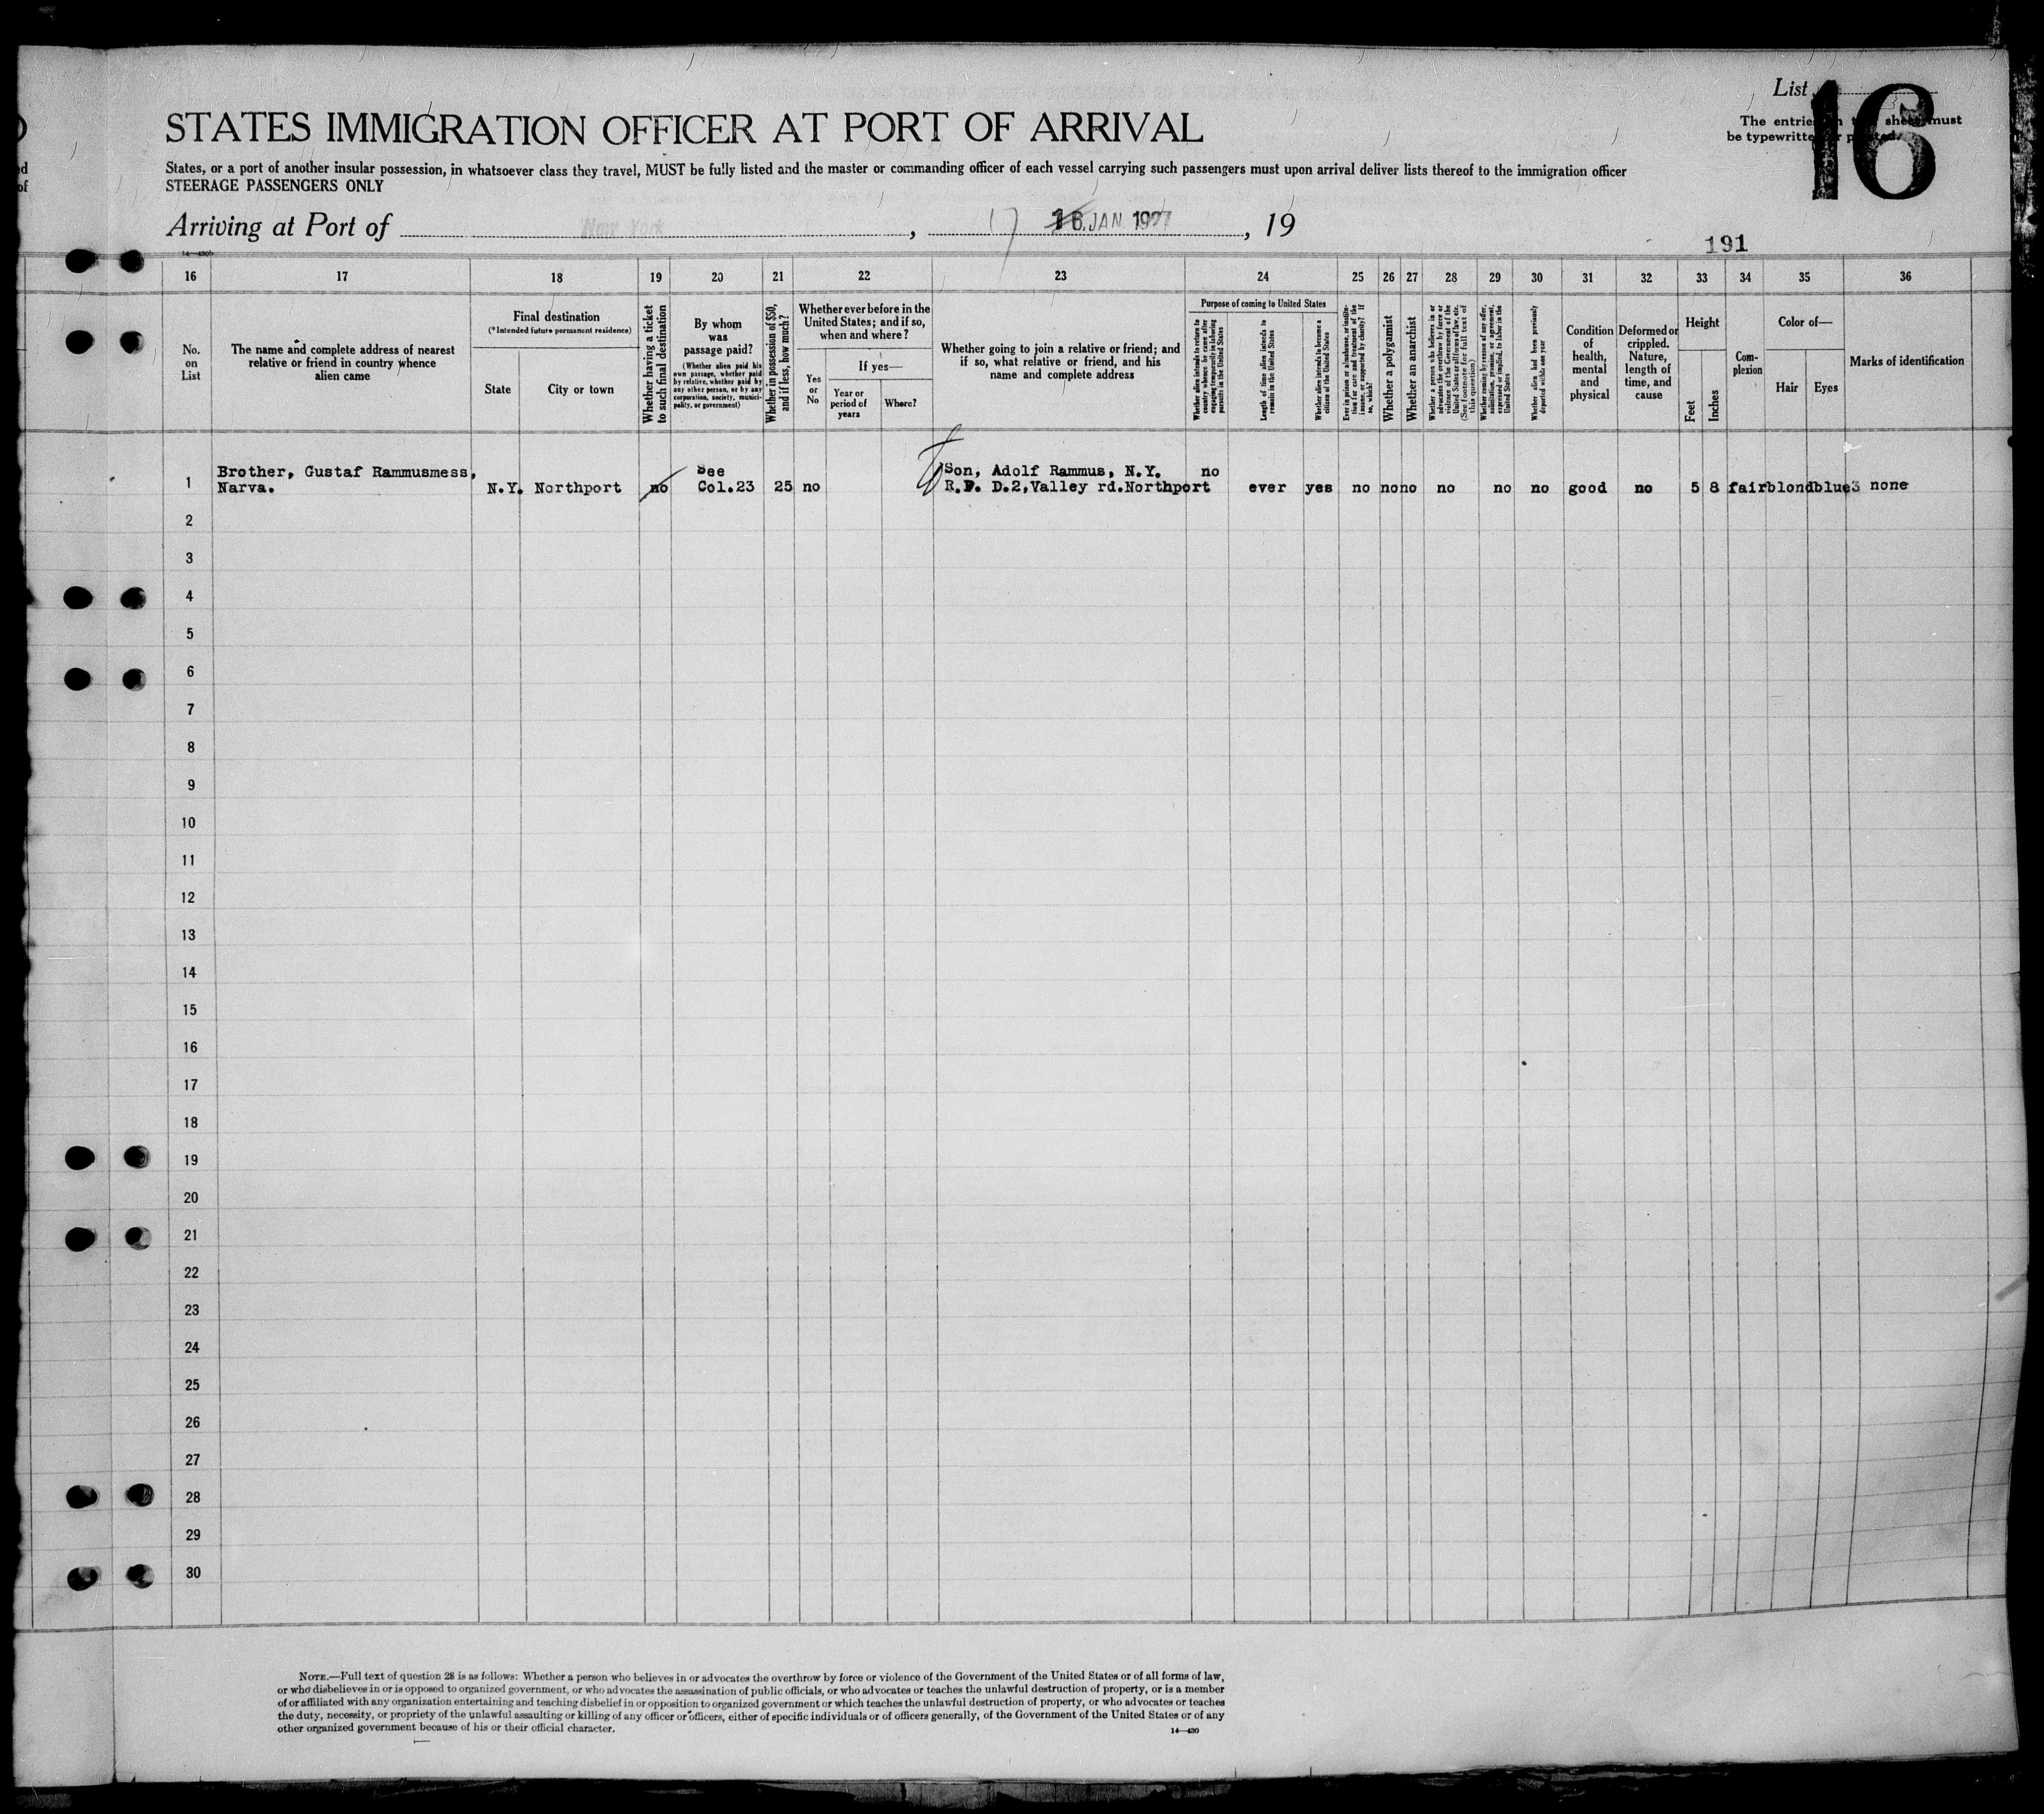 List
16
STATES IMMIGRATION OFFICER AT PORT OF ARRIVAL
The entries on this sheet must
be typewritten or printed.
States, or a port of another insular possession, in whatsoever class they travel, MUST be fully listed and the master or commanding officer of each vessel carrying such passengers must upon arrival deliver lists thereof to the immigration officer
STEERAGE PASSENGERS ONLY
Arriving at Port of New York, 17 16 JAN. 1927, 19
191
16 17 18 19 20 21 22 23 24 25 26 27 28 29 30 31 32 33 34 35 36
No.
on
List
The name and complete address of nearest
relative or friend in country whence
alien came
Final destination
(*Intended future permanent residence)
State
City or town
Whether having a ticket
to such final destination
By whom
was
passage paid?
(Whether alien paid his
own passage, whether paid
by relative, whether paid by
any other person, or by any
corporation, society, munici-
pality, or government)
Whether in possession of $50,
and if less, how much?
Whether ever before in the
United States; and if so,
when and where?
Yes
or
No
If yes—
Year or
period of
years
Where?
Whether going to join a relative or friend; and
if so, what relative or friend, and his
name and complete address
Purpose of coming to United States
Whether alien intends to return to
country whence he came after
engaging temporarily in laboring
pursuits in the United States
Length of time alien intends to
remain in the United States
Whether alien intends to become a
citizen of the United States
Ever in prison or almshouse, or institu-
tion for care and treatment of the
insane, or supported by charity? If
so, which?
Whether a polygamist
Whether an anarchist
Whether a person who believes in or
advocates the overthrow by force or
violence of the Government of the
United States or all forms of law, etc.
(See footnote for full text of
this question)
Whether coming by reason of any offer,
solicitation, promise, or agreement,
expressed or implied, to labor in the
United States
Whether alien had been previously
deported within one year
Condition
of
health,
mental
and
physical
Deformed or
crippled.
Nature,
length of
time, and
cause
Height
Feet
Inches
Com-
plexion
Color of—
Hair
Eyes
Marks of identification
Brother, Gustaf Rammusmess, See Son, Adolf Rammus, N.Y. no
1 Narva. N.Y. Northport no Col.23 25 no R.F. D.2,Valley rd.Northport ever yes no no no no no no good no 5 8 fair blond blue3 none
2
3
4
5
6
7
8
9
10
11
12
13
14
15
16
17
18
19
20
21
22
23
24
25
26
27
28
29
30
NOTE.—Full text of question 28 is as follows: Whether a person who believes in or advocates the overthrow by force or violence of the Government of the United States or of all forms of law,
or who disbelieves in or is opposed to organized government, or who advocates the assassination of public officials, or who advocates or teaches the unlawful destruction of property, or is a member
of or affiliated with any organization entertaining and teaching disbelief in or opposition to organized government or which teaches the unlawful destruction of property, or who advocates or teaches
the duty, necessity, or propriety of the unlawful assaulting or killing of any officer or officers, either of specific individuals or of officers generally, of the Government of the United States or of any
other organized government because of his or their official character.
14—430